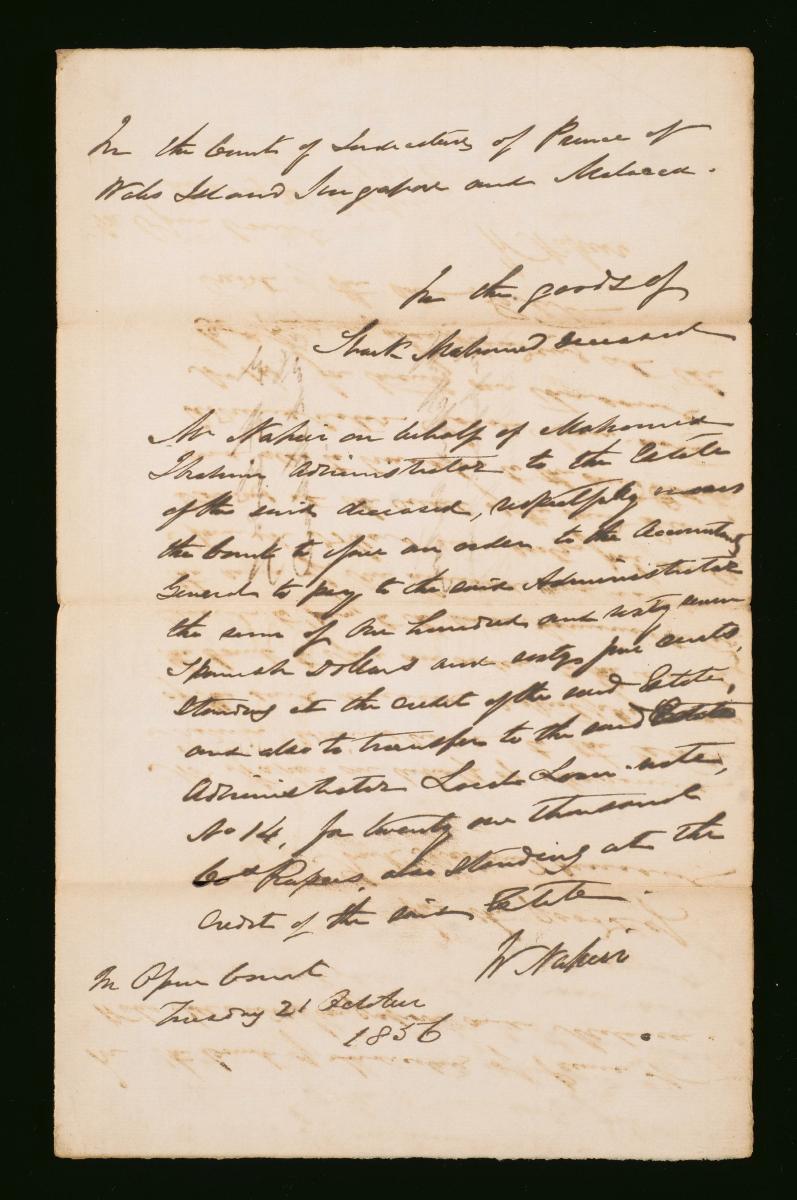 In the Court of Judicature of Prince of
Wales Island Singapore and Malacca.
In the goods of
Shaik Mahomed deceased
Mr Napier on behalf of Mahomed
Ibrahim Administrator to the Estate
of the said deceased, respectfully moves
the Court to give an order to the Accountant
General to pay to the said Administrator
the sum of One hundred and sixty seven
Spanish Dollars and sixty five cents,
standing at the credit of the said Estate,
and also to transfer to the said
Administrator Loan note,
No 14, for twenty one thousand
Cos Rupees, also standing at the
credit of the said Estate.
W Napier
In Open Court
Tuesday 21 October
1856